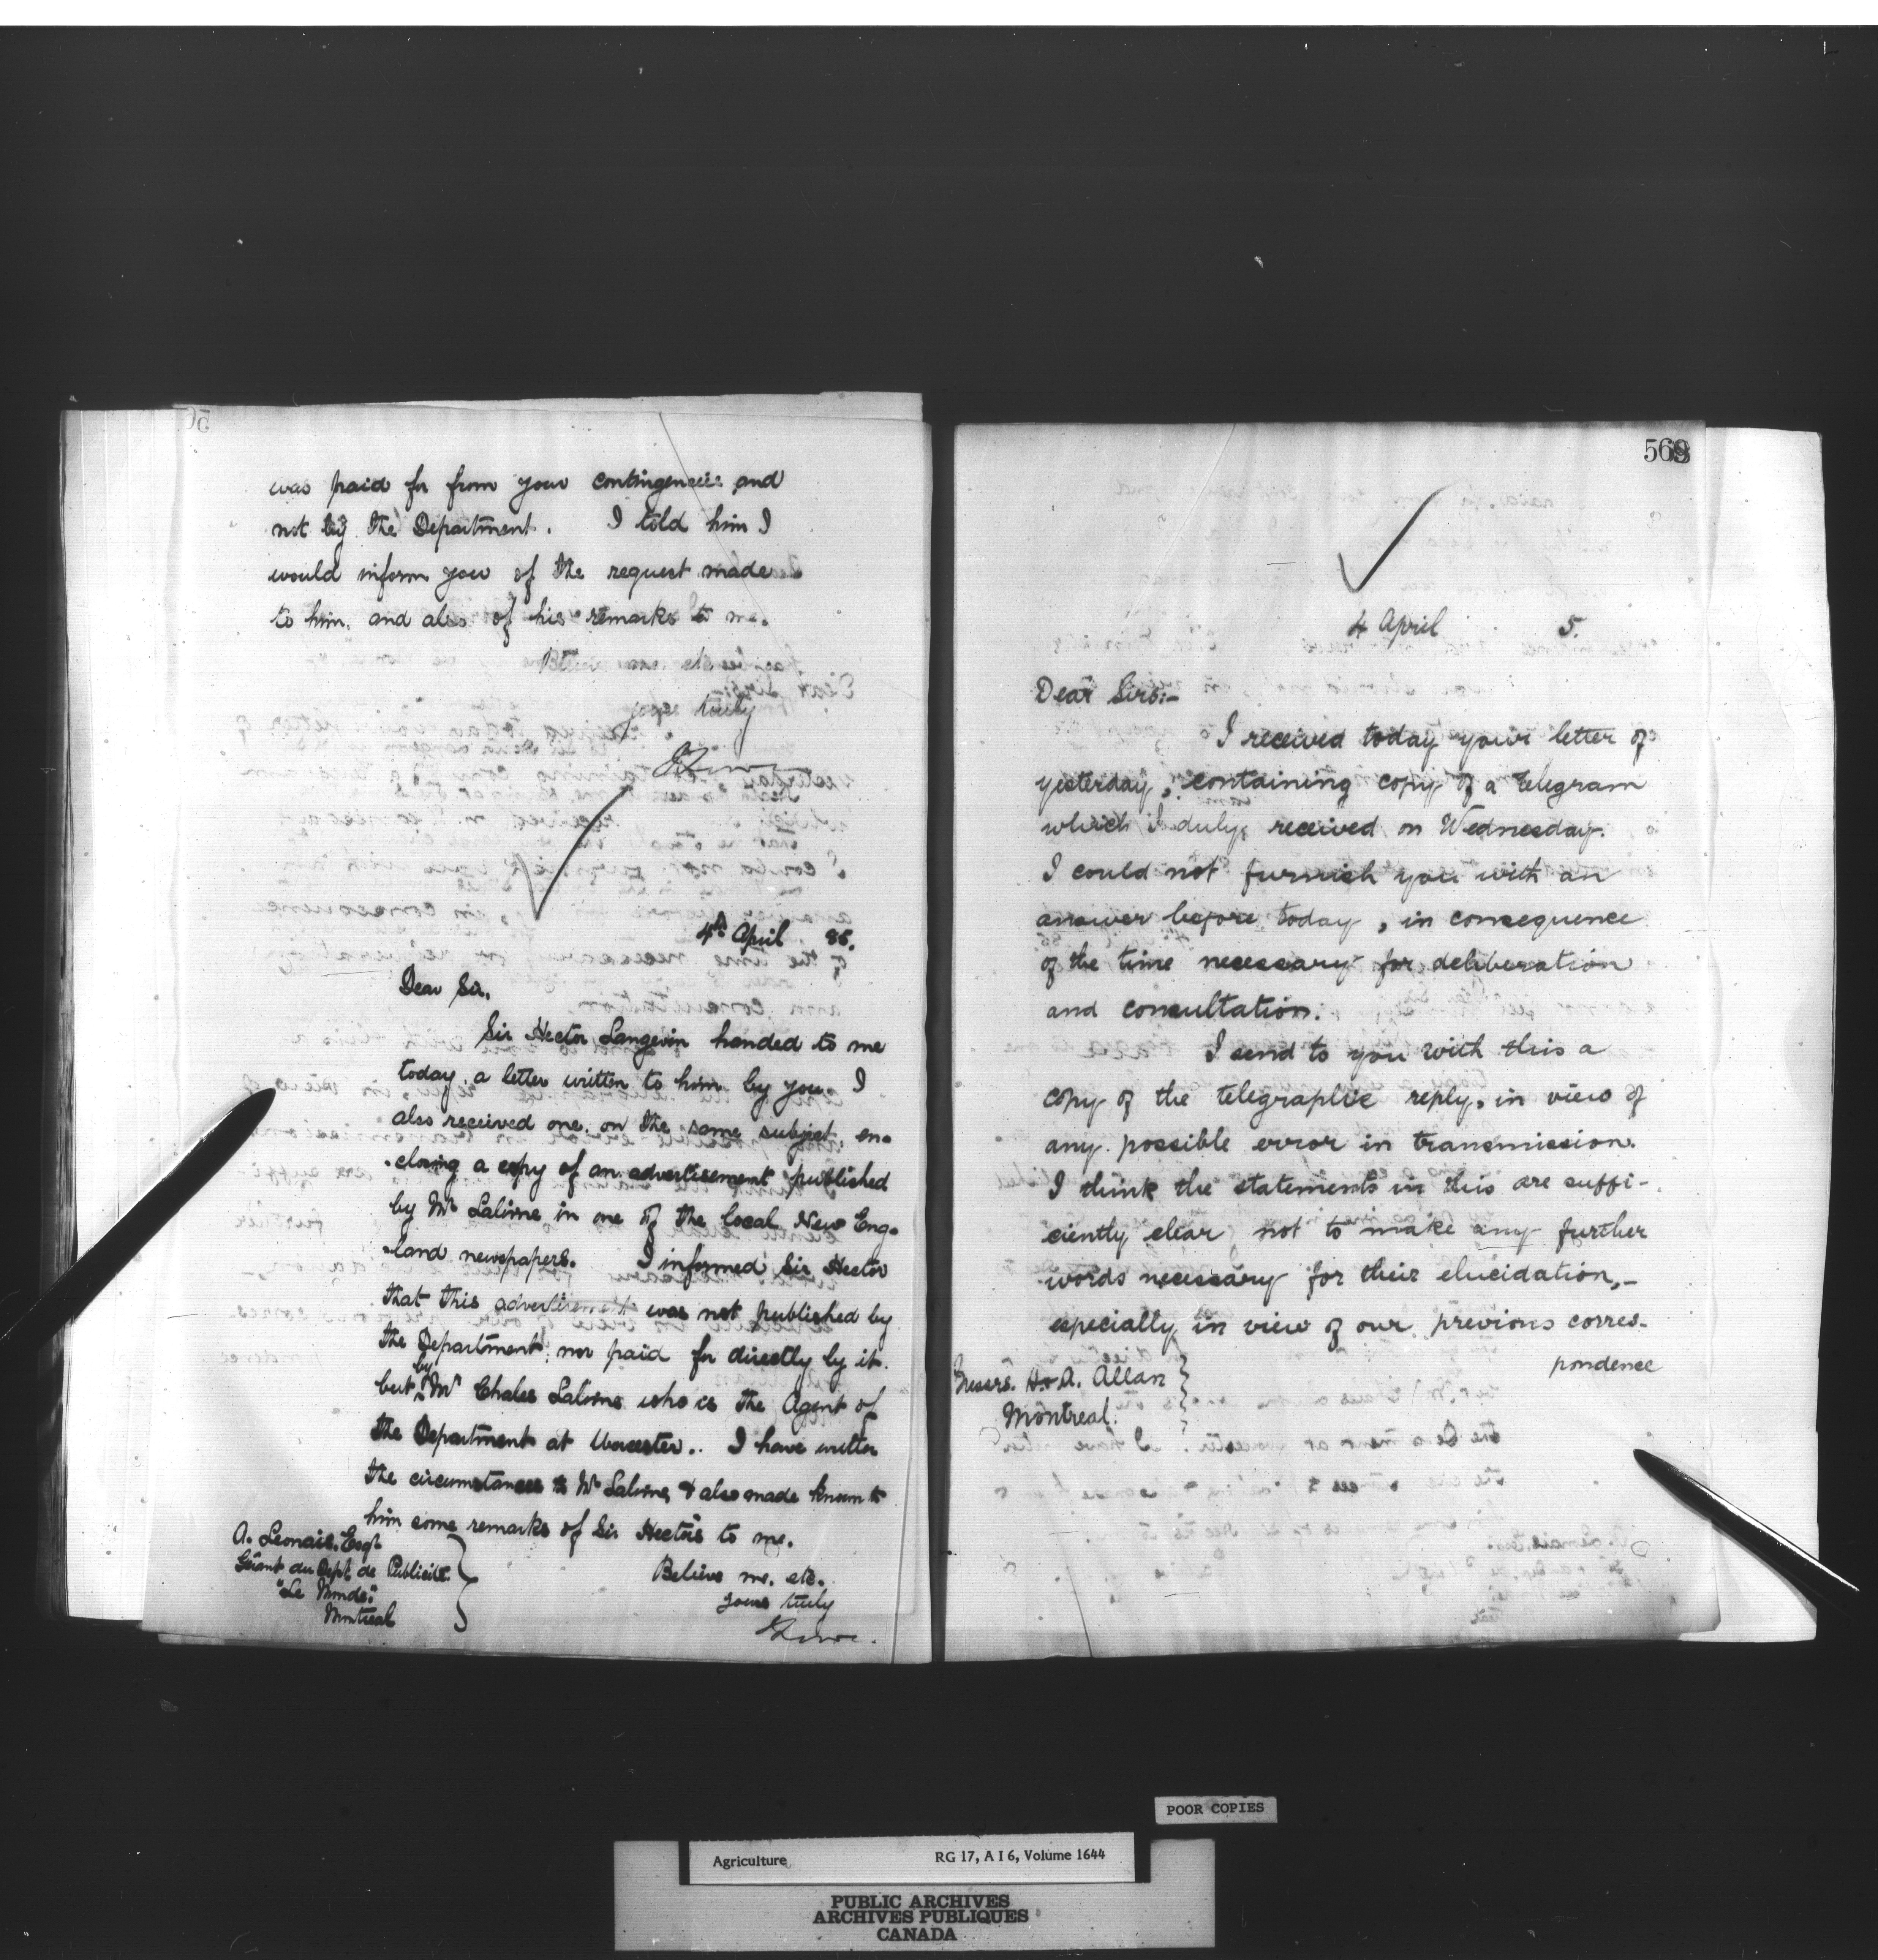 was paid for from your contingencies and
not by the Department. I told him I
would inform you of the request made
to him, and also of his remarks to me.
Believe me etc
yours truly
J Lowe
4th April 85.
Dear Sir,
Sir Hector Langevin handed to me
today a letter written to him by you. I
also received one, on the same subject, en-
-closing a copy of an advertisement published
by Mr Lalime in one of the local New Eng-
-land newspapers. I informed Sir Hector
that this advertisement was not published by
the Department, nor paid for directly by it.
but by Mr Chales Lalime who is the Agent of
the Department at Worcester. I have written
the circumstances to Mr Lalime, & also made known to
him some remarks of Sir Hector's to me.
A. Leonais, Esqr
Gérant du Dept. de Publicité
"Le Monde."
Montreal
Believe me, etc.
yours truly
J Lowe.
568
4 April 5.
Dear Sirs:-
I received today your letter of
yesterday, containing copy of a telegram
which I duly received on Wednesday.
I could not furnish you with an
answer before today, in consequence
of the time necessary for deliberation
and consultation.
I send to you with this a
copy of the telegraphic reply, in view of
any possible error in transmission.
I think the statements in this are suffi-
ciently clear not to make any further
words necessary for their elucidation,-
especially in view of our previous corres-
pondence
Messrs. H. & A. Allan
Montreal.
POOR COPIES
Agriculture RG 17, A I 6, Volume 1644
PUBLIC ARCHIVES
ARCHIVES PUBLIQUES
CANADA